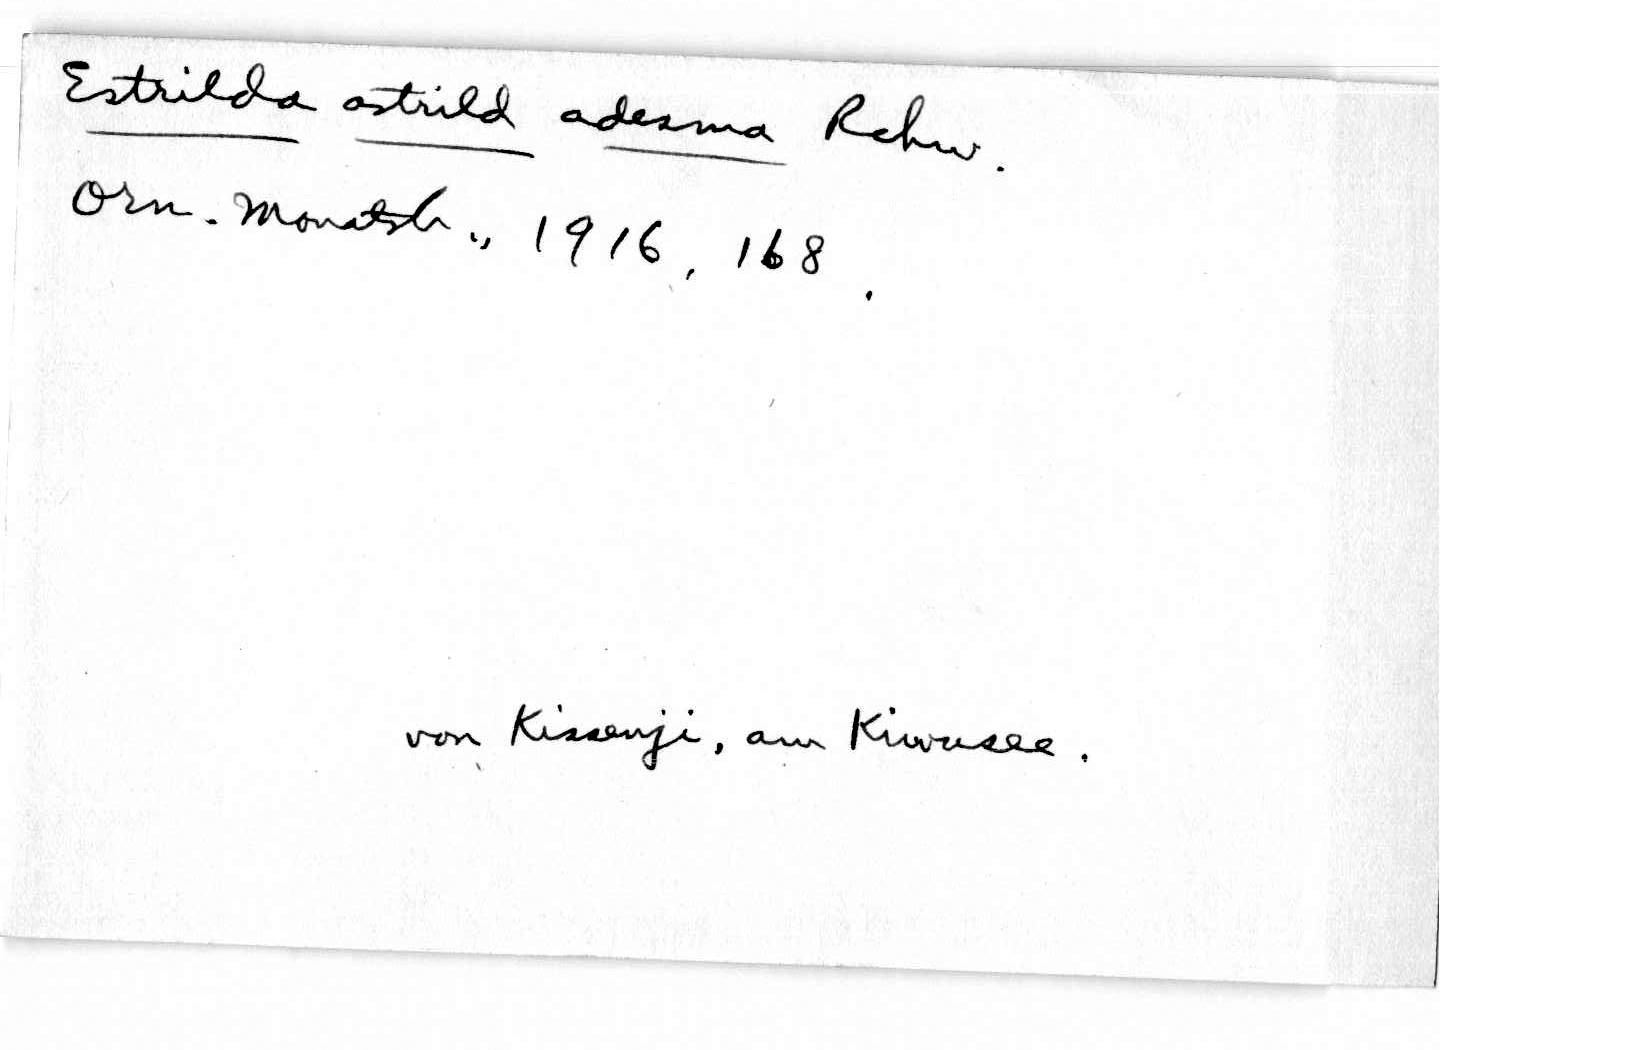 Estrilda astrild adesma Rchw.
Orn. Monatsb., 1916, 168.
von Kissenji, am Kiwusee.